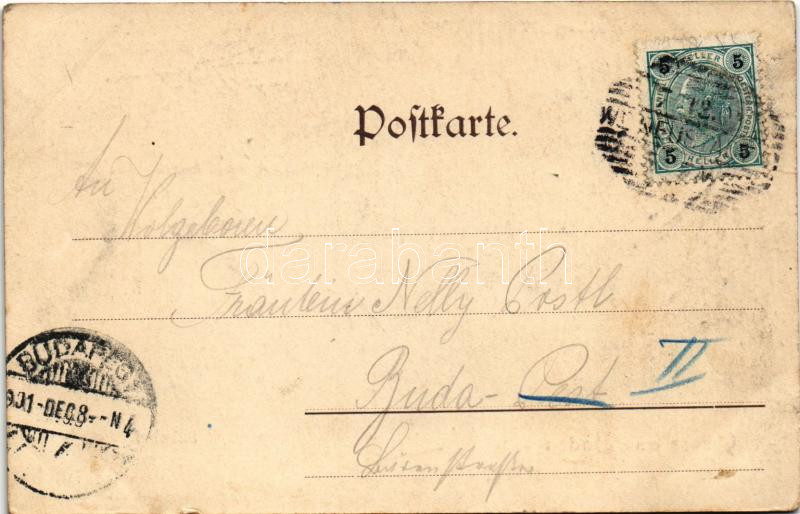 Postkarte.
5 HELLER 5
12.
5 HELLER 5
An
Wolgeboren
Fräulein Nelly Postl
Buda-Pest II
BUDAPEST
901-DEC.8--N4
darabanth